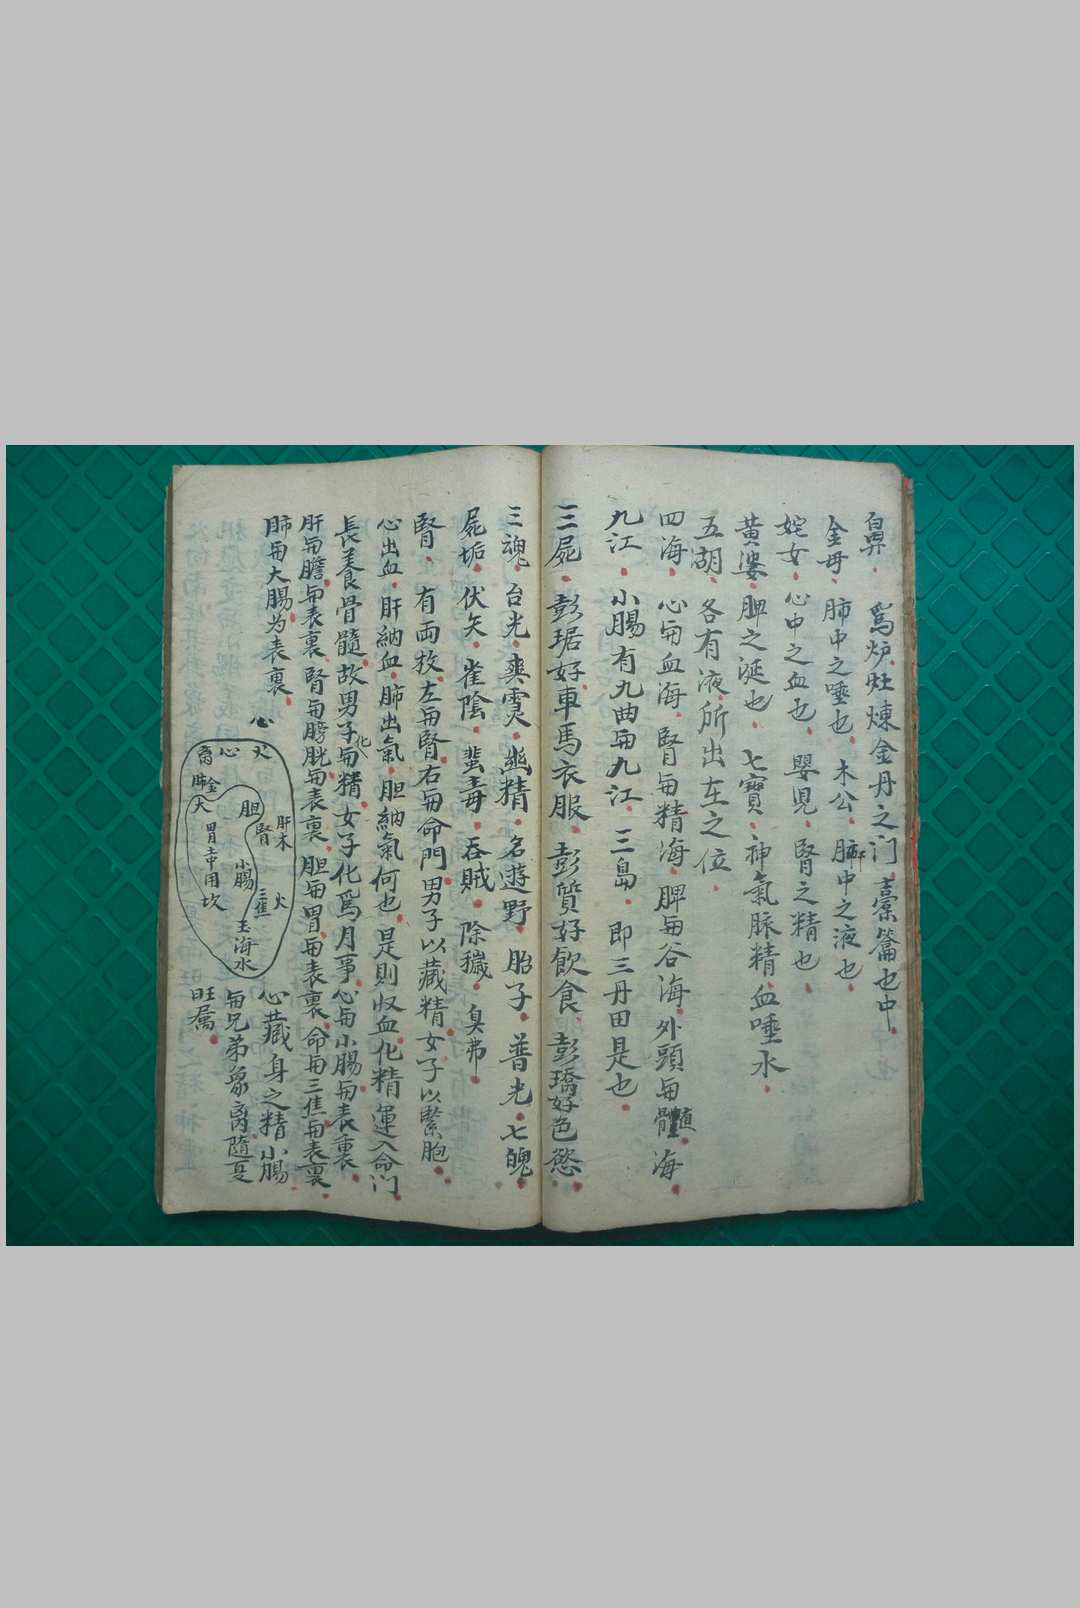 鼻．為炉灶煉金丹之门．橐籥也中
金毋．肺中之唾也．木公．肺中之液也．
姹女．心中之血也．嬰児．腎之精也．
黄婆．脾之涎也．七寶．神氣脉精血唾水．
五胡．各有液所出在之位．
四海．心为血海．腎为精海．脾为谷海．外頭为髓海
九江．小腸有九曲为九江．三島．即三丹田是也．
三屍．彭琚好車馬衣服．彭質好飲食．彭矯好色慾．
三魂．台光．爽霊．幽精．名遊野．胎子．普光．七魄．
屍垢．伏矢．雀陰．蜚毒．吞賊．除穢．臭弗．
腎．有両枚．左为腎右为命門男子以藏精女子以繫胞．
心出血．肝納血．肺出氣．胆納氣何也．是則収血化精運入命门
長養骨髓．故男子化为精．女子化爲月事．心与小腸为表裏．
肝与膽为表裏．腎与膀胱为表裏．胆与胃为表裏．命与三焦为表裏．
肺与大腸为表裏．
心
火
心
离
肺金
大
胆
腎
肝木
胃
用坎
小腸
三焦
火
玉海水
心藏身之精小腸
为兄弟象离隨夏
旺属．